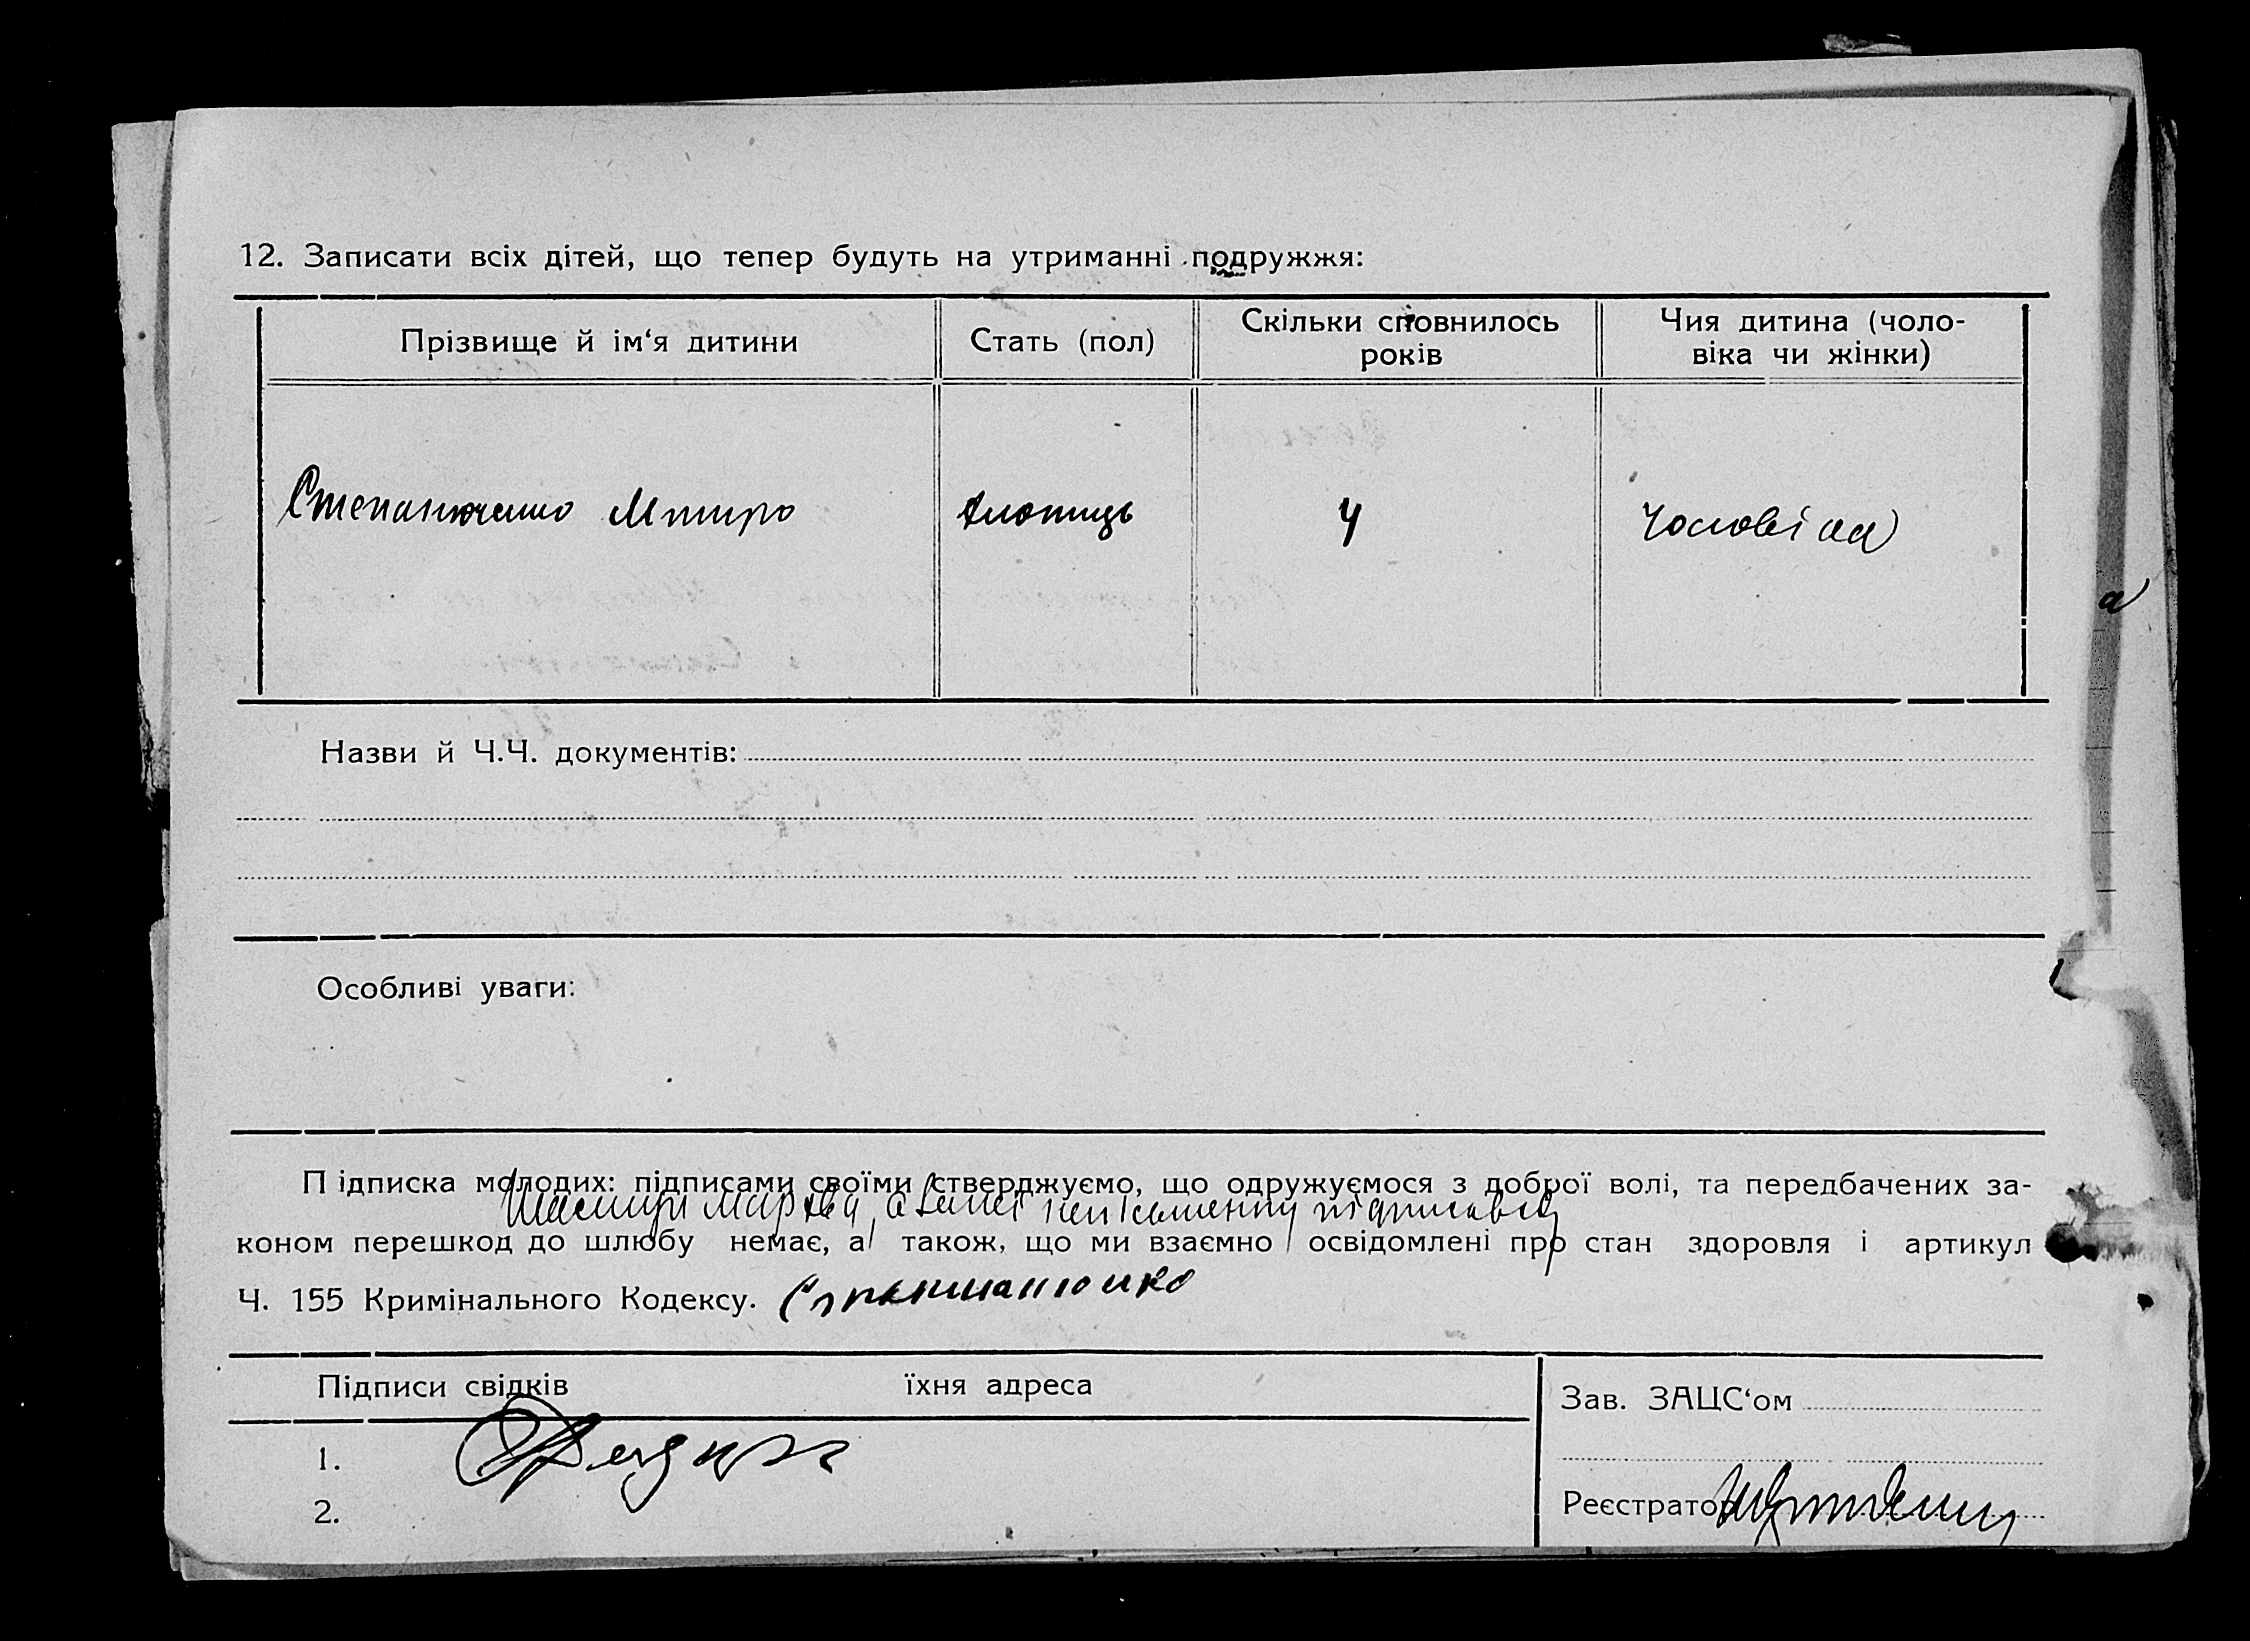 12. Записати всіх дітей, що тепер будуть на утриманні подружжя:
Прізвище й ім‘я дитини
Стать (пол)
Скільки сповнилось
років
Чия дитина (чоло-
віка чи жінки)
Хлопець
4
Чоловіка
Назви й Ч.Ч. документів:
Особливі уваги:
Підписка молодих: підписами своїми стверджуємо, що одружуємося з доброї волі, та передбачених за-
коном перешкод до шлюбу немає, а також, що ми взаємно освідомлені про стан здоровля і артикул
Ч. 155 Кримінального Кодексу.
Підписи свідків
їхня адреса
1.
2.
Зав. ЗАЦС‘ом
Реєстратор